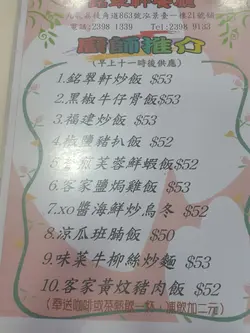 電話:2398 1339 Tel:2398 9133
廚師推介
(早上十一時後供應)
1.銘翠軒炒飯 $53
2.黑椒牛仔骨飯$53
3.福建炒飯 $53
4.椒鹽豬扒飯 $52
芙蓉鮮蝦飯$52
6.客家鹽焗雞飯 $53
7.xo醬海鮮炒烏冬 $52
8.涼瓜班腩飯 $50
9.味菜牛柳絲炒麵 $53
10.客家黃炆豬肉飯 $52